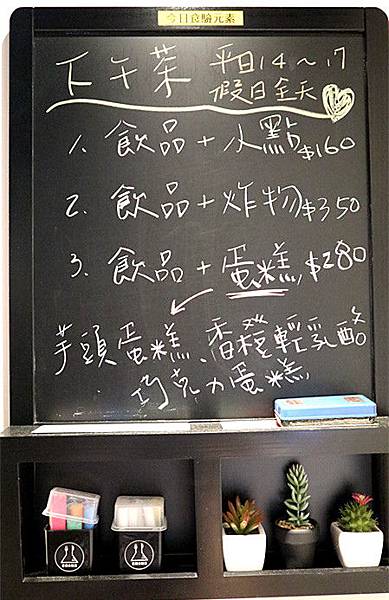 今日食驗元素
下午茶 平日14～17
假日全天
1. 飲品+小點$160
2. 飲品+炸物$350
3. 飲品+蛋糕$280
芋頭蛋糕、香橙輕乳酪
巧克力蛋糕